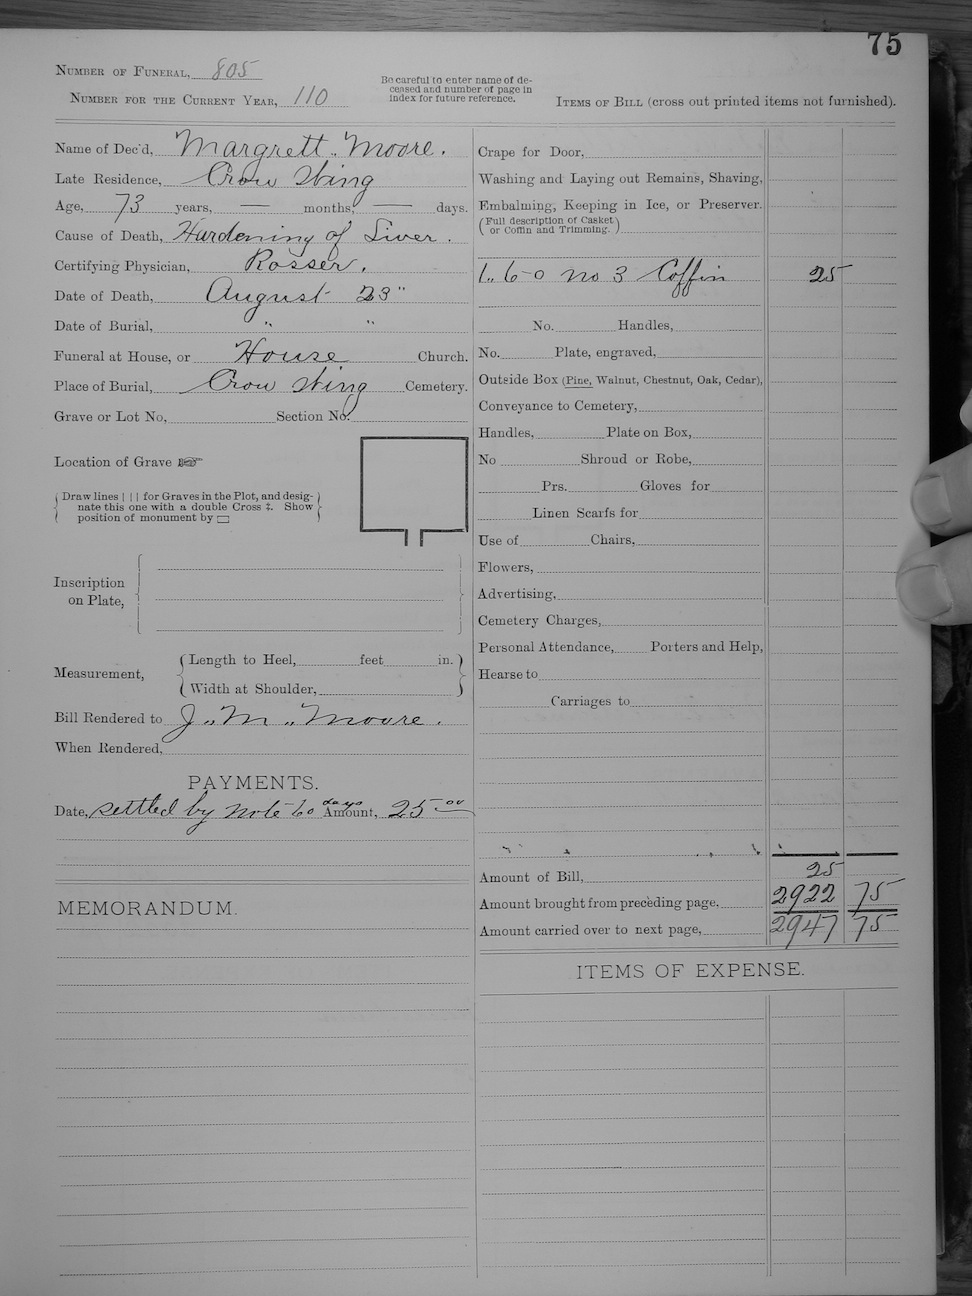 75
NUMBER OF FUNERAL, 805
NUMBER FOR THE CURRENT YEAR, 110
Be careful to enter name of de-
ceased and number of page in
index for future reference.
ITEMS OF BILL (cross out printed items not furnished).
Name of Dec'd, Margrett Moore.
Late Residence, Crow Wing
Age, 73 years, — months, — days.
Cause of Death, Hardening of Liver.
Certifying Physician, Rosser.
Date of Death, August 23"
Date of Burial, " "
Funeral at House, or House Church.
Place of Burial, Crow Wing Cemetery.
Grave or Lot No, Section No.
Location of Grave ☞
Draw lines | | | for Graves in the Plot, and desig-
nate this one with a double Cross ‡. Show
position of monument by ▭
Inscription
on Plate,
Measurement,
Length to Heel, feet in.
Width at Shoulder,
Bill Rendered to J. M. Moore.
When Rendered,
PAYMENTS.
Date, settled by note 60 days Amount, 25 00
MEMORANDUM.
Crape for Door,
Washing and Laying out Remains, Shaving,
Embalming, Keeping in Ice, or Preserver.
(Full description of Casket
or Coffin and Trimming.)
6-0 no 3 Coffin 25
No. Handles,
No. Plate, engraved,
Outside Box (Pine, Walnut, Chestnut, Oak, Cedar),
Conveyance to Cemetery,
Handles, Plate on Box,
No Shroud or Robe,
Prs. Gloves for
Linen Scarfs for
Use of Chairs,
Flowers,
Advertising,
Cemetery Charges,
Personal Attendance, Porters and Help,
Hearse to
Carriages to
Amount of Bill, 25
Amount brought from preceding page, 2922 75
Amount carried over to next page, 2947 75
ITEMS OF EXPENSE.